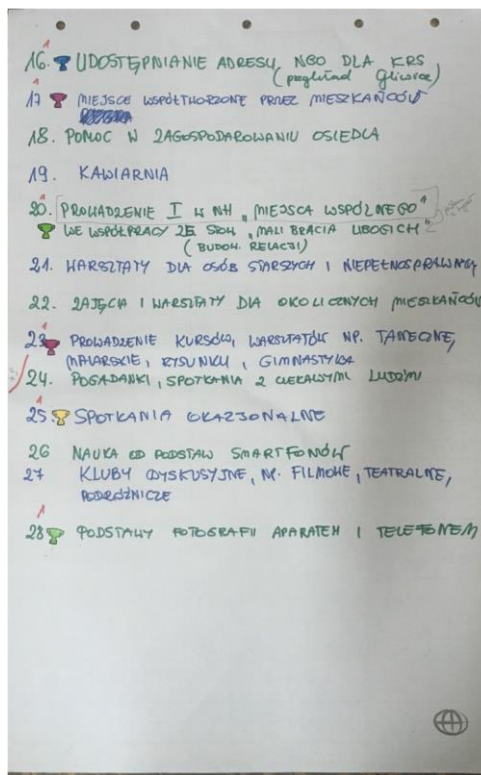 16. UDOSTĘPNIANIE ADRESU NGO DLA KRS
(przegląd Gliwice)
17 MIEJSCE WSPÓŁTWORZONE PRZEZ MIESZKAŃCÓW
18. POMOC W ZAGOSPODAROWANIU OSIEDLA
19. KAWIARNIA
20. PROWADZENIE I W NH „MIEJSCA WSPÓLNEGO"
WE WSPÓŁPRACY ZE STOW. „MALI BRACIA UBOGICH"
(BUDOW. RELACJI)
21. WARSZTATY DLA OSÓB STARSZYCH I NIEPEŁNOSPRAWNYCH
22. ZAJĘCIA I WARSZTATY DLA OKOLICZNYCH MIESZKAŃCÓW
23 PROWADZENIE KURSÓW, WARSZTATÓW NP. TANECZNE,
MALARSKIE, RYSUNKU, GIMNASTYKA
24. POGADANKI, SPOTKANIA Z CIEKAWYMI LUDŹMI
25. SPOTKANIA OKAZJONALNE
26 NAUKA OD PODSTAW SMARTFONÓW
27 KLUBY DYSKUSYJNE, NP. FILMOWE, TEATRALNE,
PODRÓŻNICZE
28 PODSTAWY FOTOGRAFII APARATEM I TELEFONEM